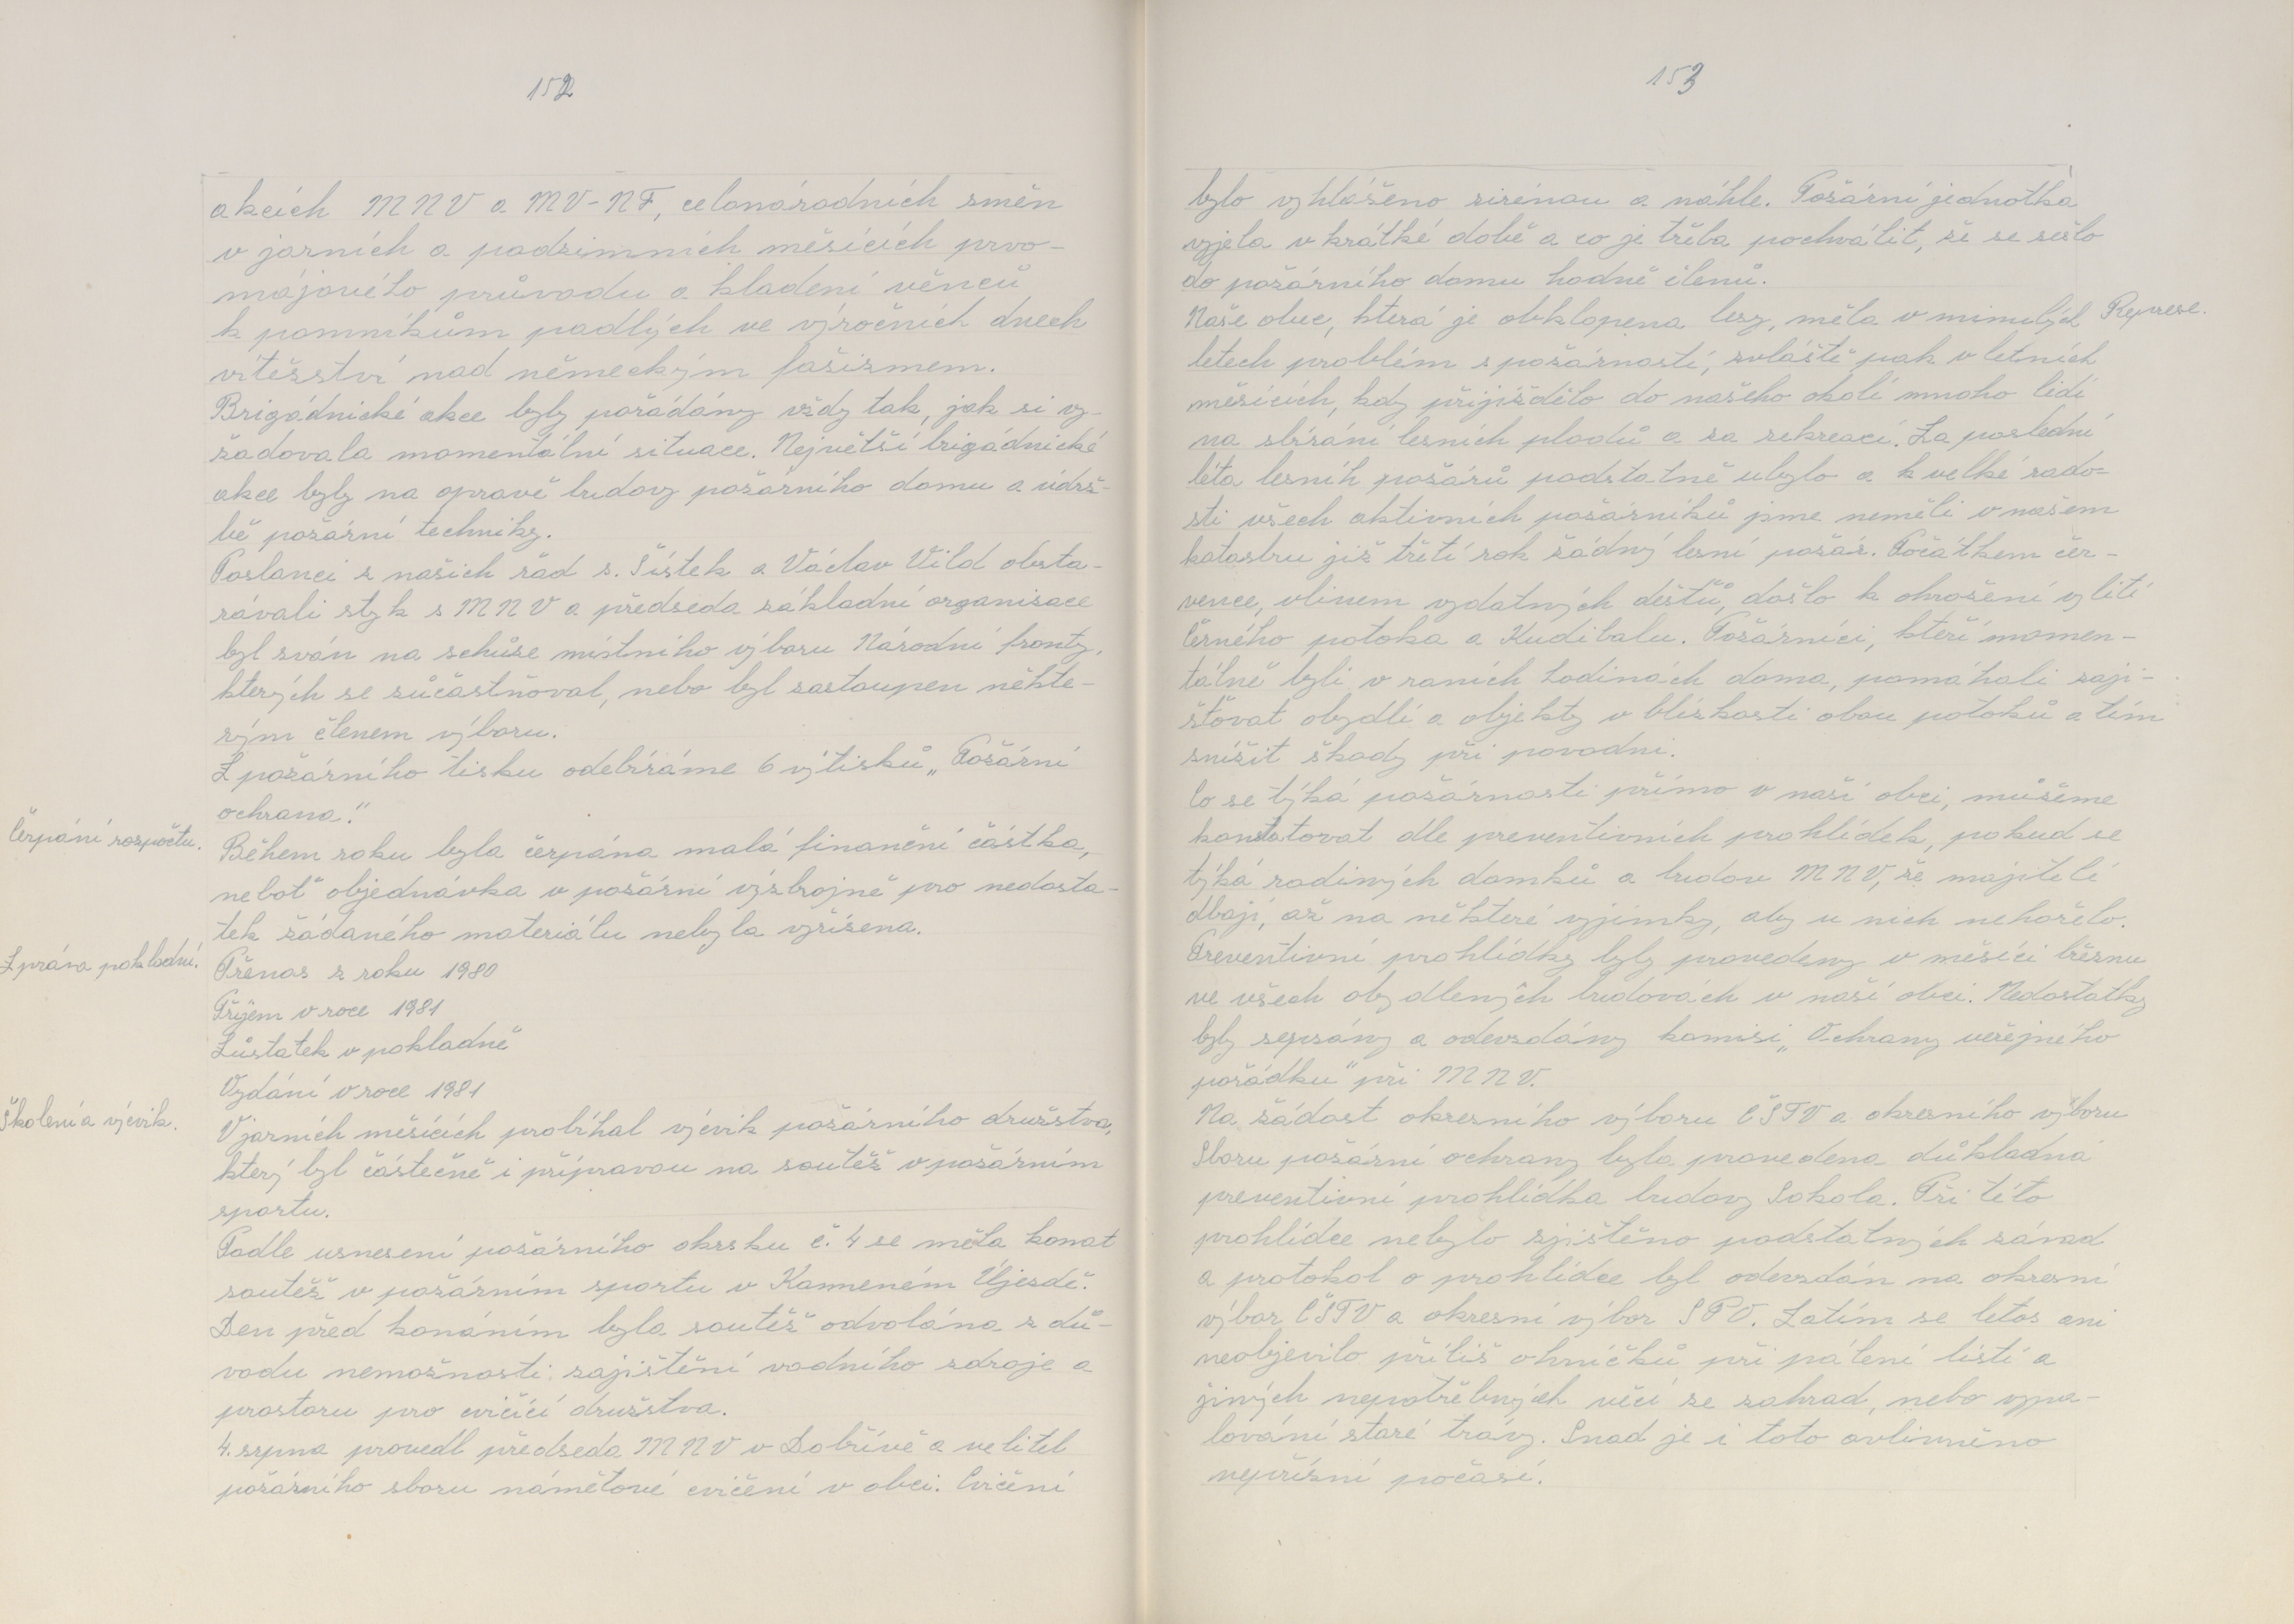 152
akcích MNV a MV-NF, celonárodních směn
v jarních a podzimních měsících prvo-
májového průvodu a kladení věnců
k pomníkům padlých ve výročních dnech
vítězství nad německým fašizmem.
Brigádnické akce byly pořádány vždy tak, jak si vy-
žadovala momentální situace. Největší brigádnické
akce byly na opravě budovy požárního domu a údrž-
bě požární techniky.
Poslanci z našich řad s. Šístek a Václav Vild obsta-
rávali styk s MNV a předseda základní organisace
byl zván na schůze místního výboru Národní fronty,
kterých se zůčastňoval, nebo byl zastoupen někte-
rým členem výboru.
Z požárního tisku odebíráme 6 výtisků „Požární
ochrana."
Čerpání rozpočtu.
Během roku byla čerpána malá finanční částka,
neboť objednávka v požární výzbrojně pro nedosta-
tek žádaného materiálu nebyla vyřízena.
Zpráva pokladní.
Přenos z roku 1980
Příjem v roce 1981
Zůstatek v pokladně
Vydání v roce 1981
Školení a výcvik.
V jarních měsících probíhal výcvik požárního družstva,
který byl částečně i přípravou na soutěž v požárním
sportu.
Podle usnesení požárního okrsku č. 4 se měla konat
soutěž v požárním sportu v Kamenném Újezdě.
Den před konáním byla soutěž odvolána z dů-
vodu nemožnosti zajištění vodního zdroje a
prostoru pro cvičící družstva.
4. srpna provedl předseda MNV v Dobřívě a velitel
požárního sboru námětové cvičení v obci. Cvičení
153
bylo vyhlášeno sirénou a náhle. Požární jednotka
vyjela v krátké době a co je třeba pochválit, že se sešlo
do požárního domu hodně členů.
Represe.
Naše obec, která je obklopena lesy, měla v minulých
letech problém s požárností, zvláště pak v letních
měsících, kdy přijíždělo do našeho okolí mnoho lidí
na sbírání lesních plodů a za rekreací. Za poslední
léta lesníh požárů podstatně ubylo a k velké rado-
sti všech aktivních požárníků jsme neměli v našem
katastru již třetí rok žádný lesní požár. Počátkem čer-
vence, vlivem vydatných dešťů, došlo k ohrožení vylití
Černého potoka a Kudibalu. Požárníci, kteří momen-
tálně byli v raních hodinách doma, pomáhali zaji-
šťovat obydlí a objekty v blízkosti obou potoků a tím
snížit škody při povodni.
Co se týká požárnosti přímo v naší obci, můžeme
konstatovat dle preventivních prohlídek, pokud se
týká rodiných domků a budov MNV, že majitelé
dbají, až na některé vyjímky, aby u nich nehořelo.
Preventivní prohlídky byly provedeny v měsíci březnu
ve všech obydlených budovách v naší obci. Nedostatky
byly sepsány a odevzdány komisi „Ochrany veřejného
pořádku" při MNV.
Na žádost okresního výboru ČSTV a okresního výboru
Sboru požární ochrany byla provedena důkladná
preventivní prohlídka budovy Sokola. Při této
prohlídce nebylo zjištěno podstatných závad
a protokol o prohlídce byl odevzdán na okresní
výbor ČSTV a okresní výbor SPO. Zatím se letos ani
neobjevilo příliš ohníčků při pálení listí a
jiných nepotřebných věcí ze zahrad, nebo vypa-
lování staré trávy. Snad je i toto ovlivněno
nepřízní počasí.